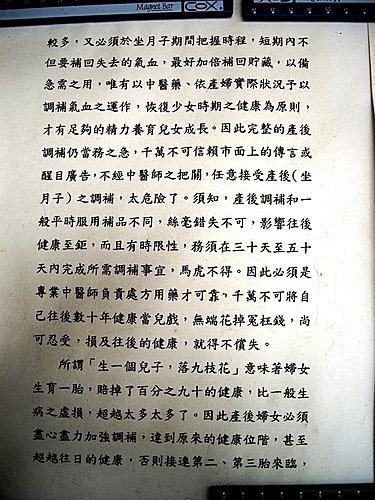 Magnet Bar
COX
較多，又必須於坐月子期間把握時程，短期內不
但要補回失去的氣血，最好加倍補回貯藏，以備
急需之用，唯有以中醫藥、依產婦實際狀況予以
調補氣血之運作，恢復少女時期之健康為原則，
才有足夠的精力養育兒女成長。因此完整的產後
調補仍當務之急，千萬不可信賴市面上的傳言或
醒目廣告，不經中醫師之把關，任意接受產後(坐
月子）之調補，太危險了。須知，產後調補和一
般平時服用補品不同，絲毫錯失不可，影響往後
健康至鉅，而且有時限性，務須在三十天至五十
天內完成所需調補事宜，馬虎不得。因此必須是
專業中醫師負責處方用藥才可靠，千萬不可將自
己往後數十年健康當兒戲，無端花掉冤枉錢，尚
可忍受，損及往後的健康，就得不償失。
所謂「生一個兒子，落九枝花」意味著婦女
生育一胎，賠掉了百分之九十的健康，比一般生
病之虛損，超越太多太多了。因此產後婦女必須
盡心盡力加強調補，達到原來的健康位階，甚至
超越往日的健康，否則接連第二、第三胎來臨，